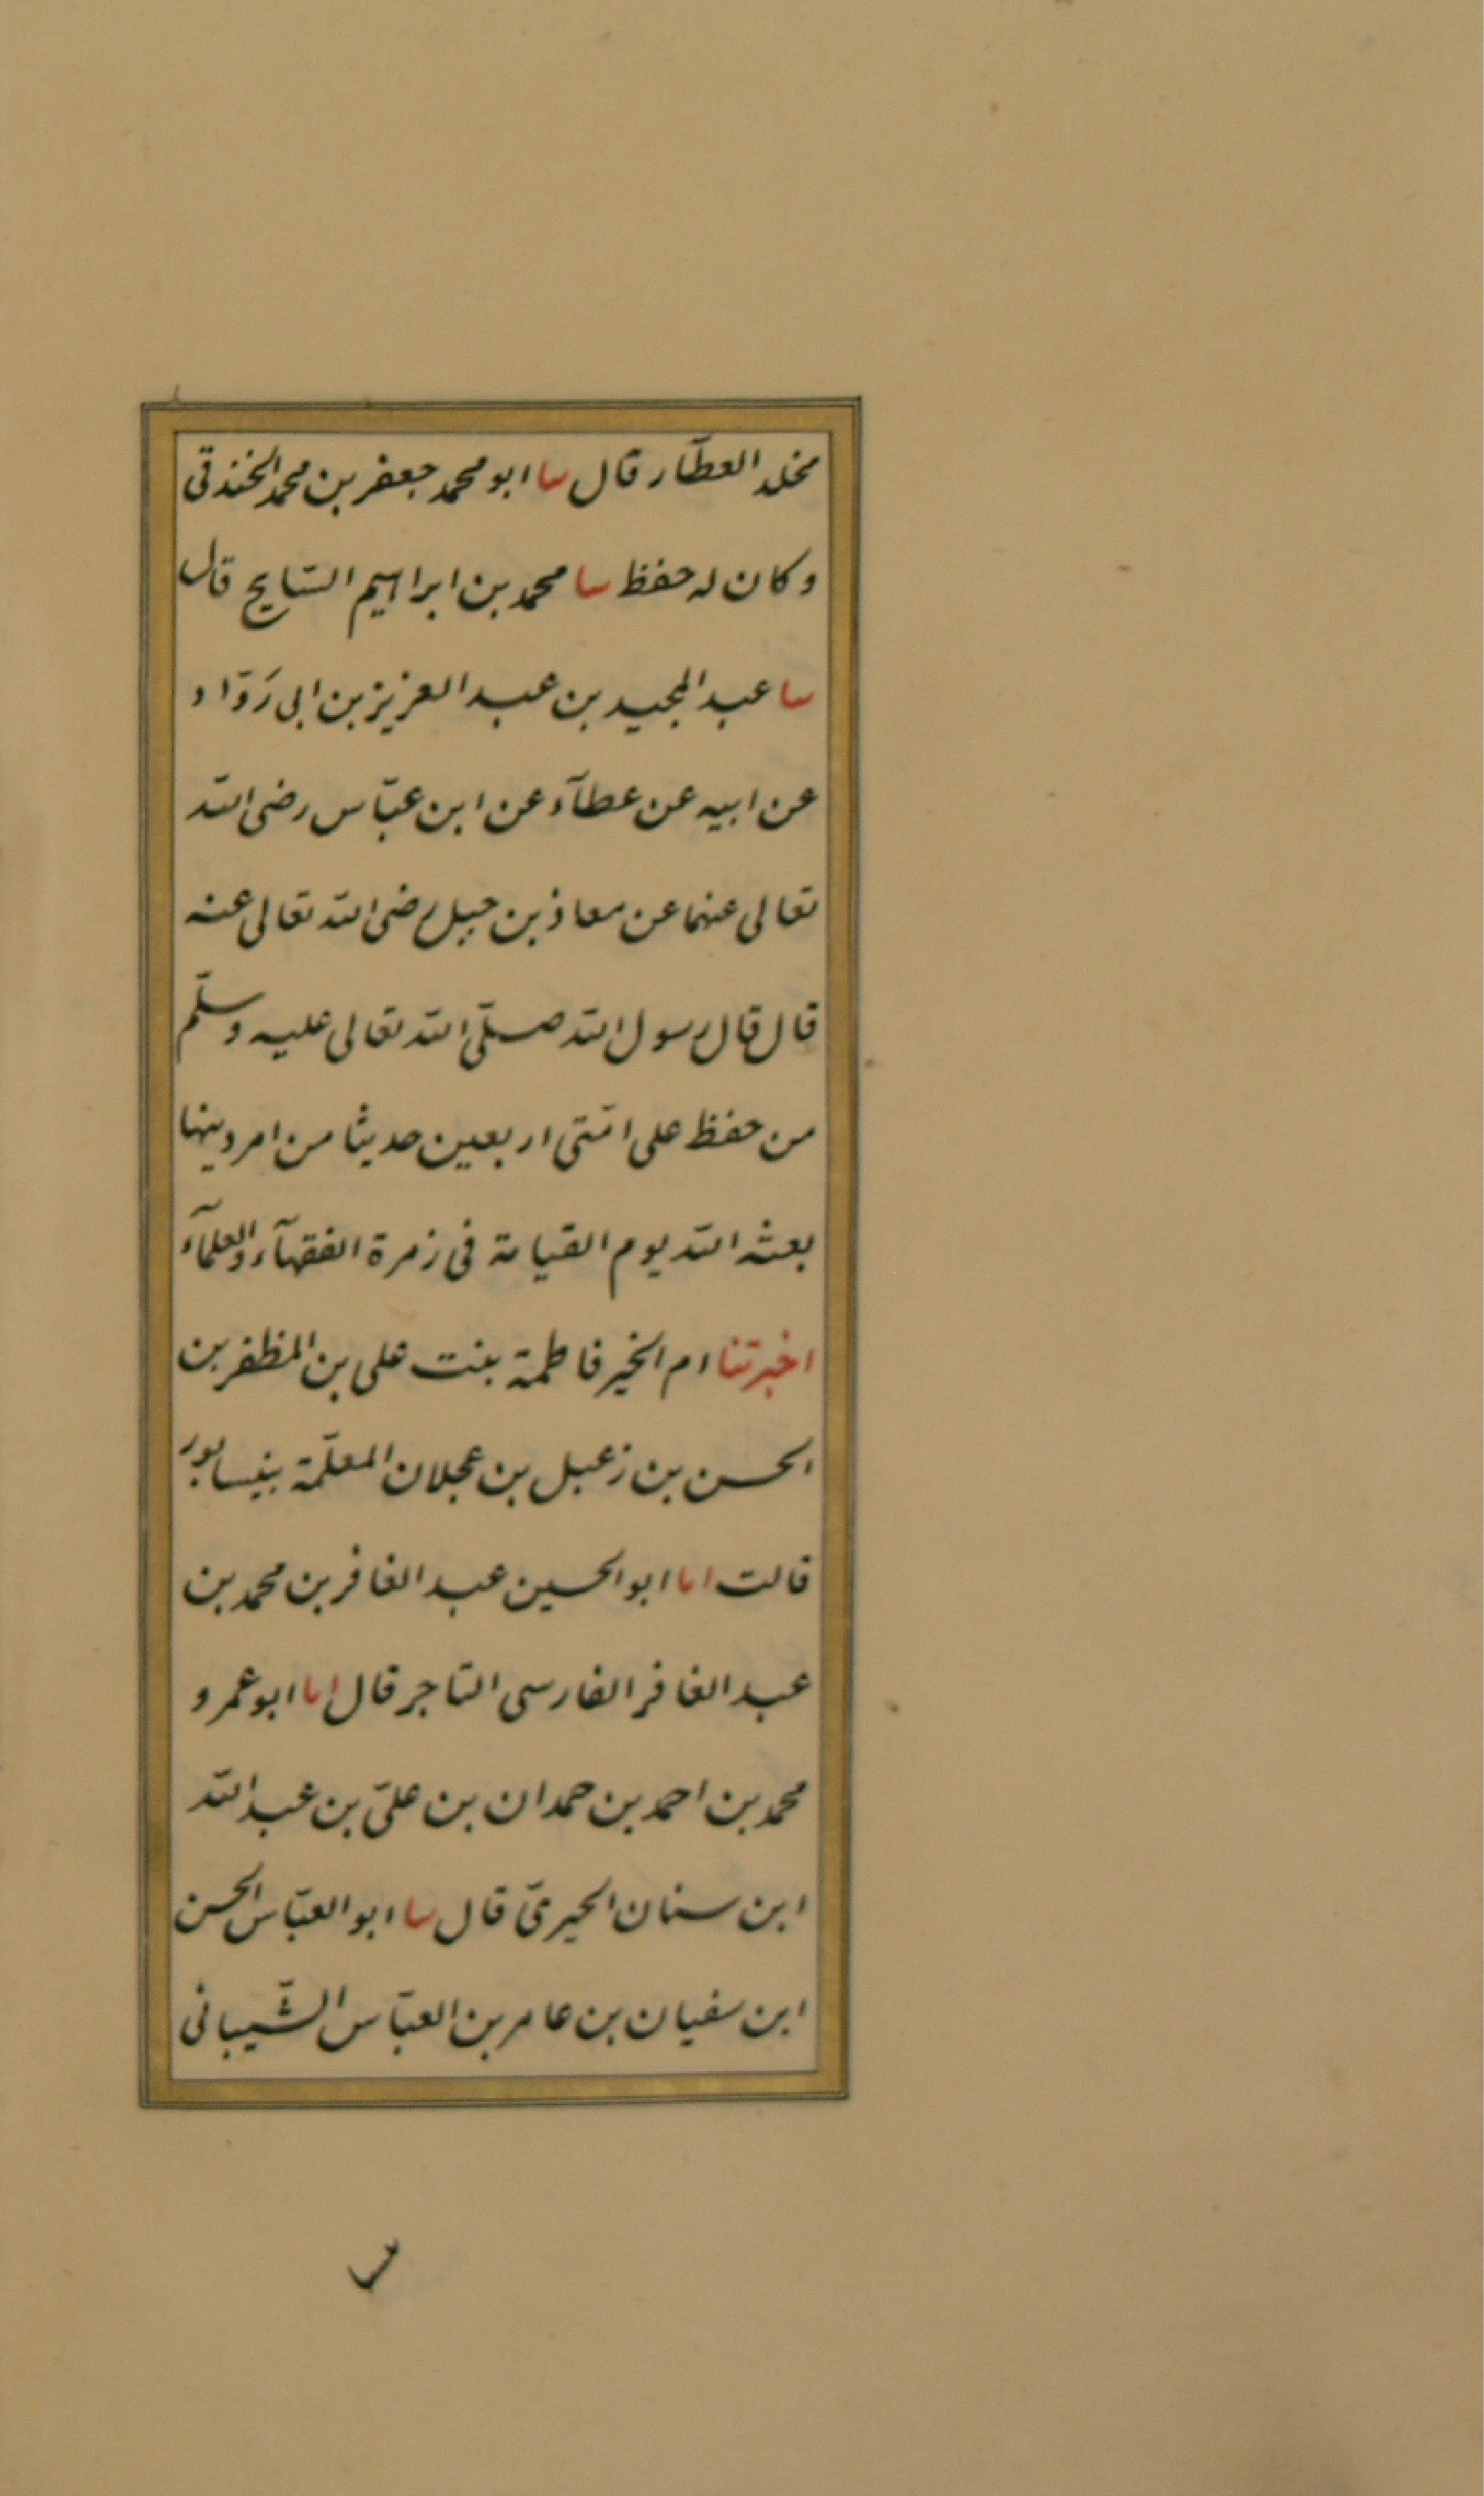 مخلد العطّار قال سا ابو محمد جعفر بن محمد الخندقى
وكان له حفظ سا محمد بن ابراهيم السّايح قال
سا عبد المجيد بن عبد العزيز بن ابى رَوّاد
عن ابيه عن عطآء عن ابن عبّاس رضى الله
تعالى عنهما عن معاذ بن جبل رضى الله تعالى عنه
قال قال رسول الله صلّى الله تعالى عليه وسلّم
من حفظ على امّتى اربعين حديثا من امر دينها
بعثه الله يوم القيامة فى زمرة الفقهآء والعلمآء
اخبرتنا ام الخير فاطمة بنت على بن المظفر بن
الحسن بن زعبل بن عجلان المعلّمة بنيسابور
قالت انا ابو الحسين عبد الغافر بن محمد بن
عبد الغافر الفارسى التاجر قال انا ابو عمرو
محمد بن احمد بن حمدان بن علىّ بن عبد الله
ابن سنان الحيرىّ قال سا ابو العبّاس الحسن
ابن سفيان بن عامر بن العبّاس الشّيبانى